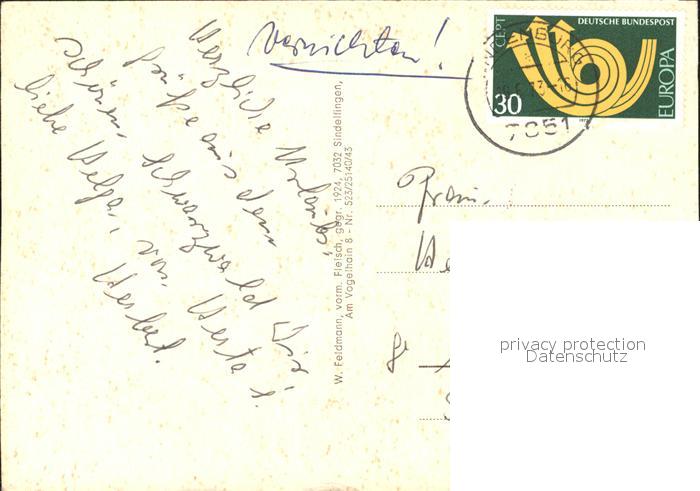 Vernichten!
Herzliche Urlaubs-
grüße aus dem
schönen Schwarzwald Dir,
liebe Helga, von Herta &
Herbert.
W. Feldmann, vorm. Fleisch, gegr. 1924, 7032 Sindelfingen,
Am Vogelhain 8 - Nr. 523/25140/43
CEPT
DEUTSCHE BUNDESPOST
EUROPA
30
7251
Frau
privacy protection
Datenschutz